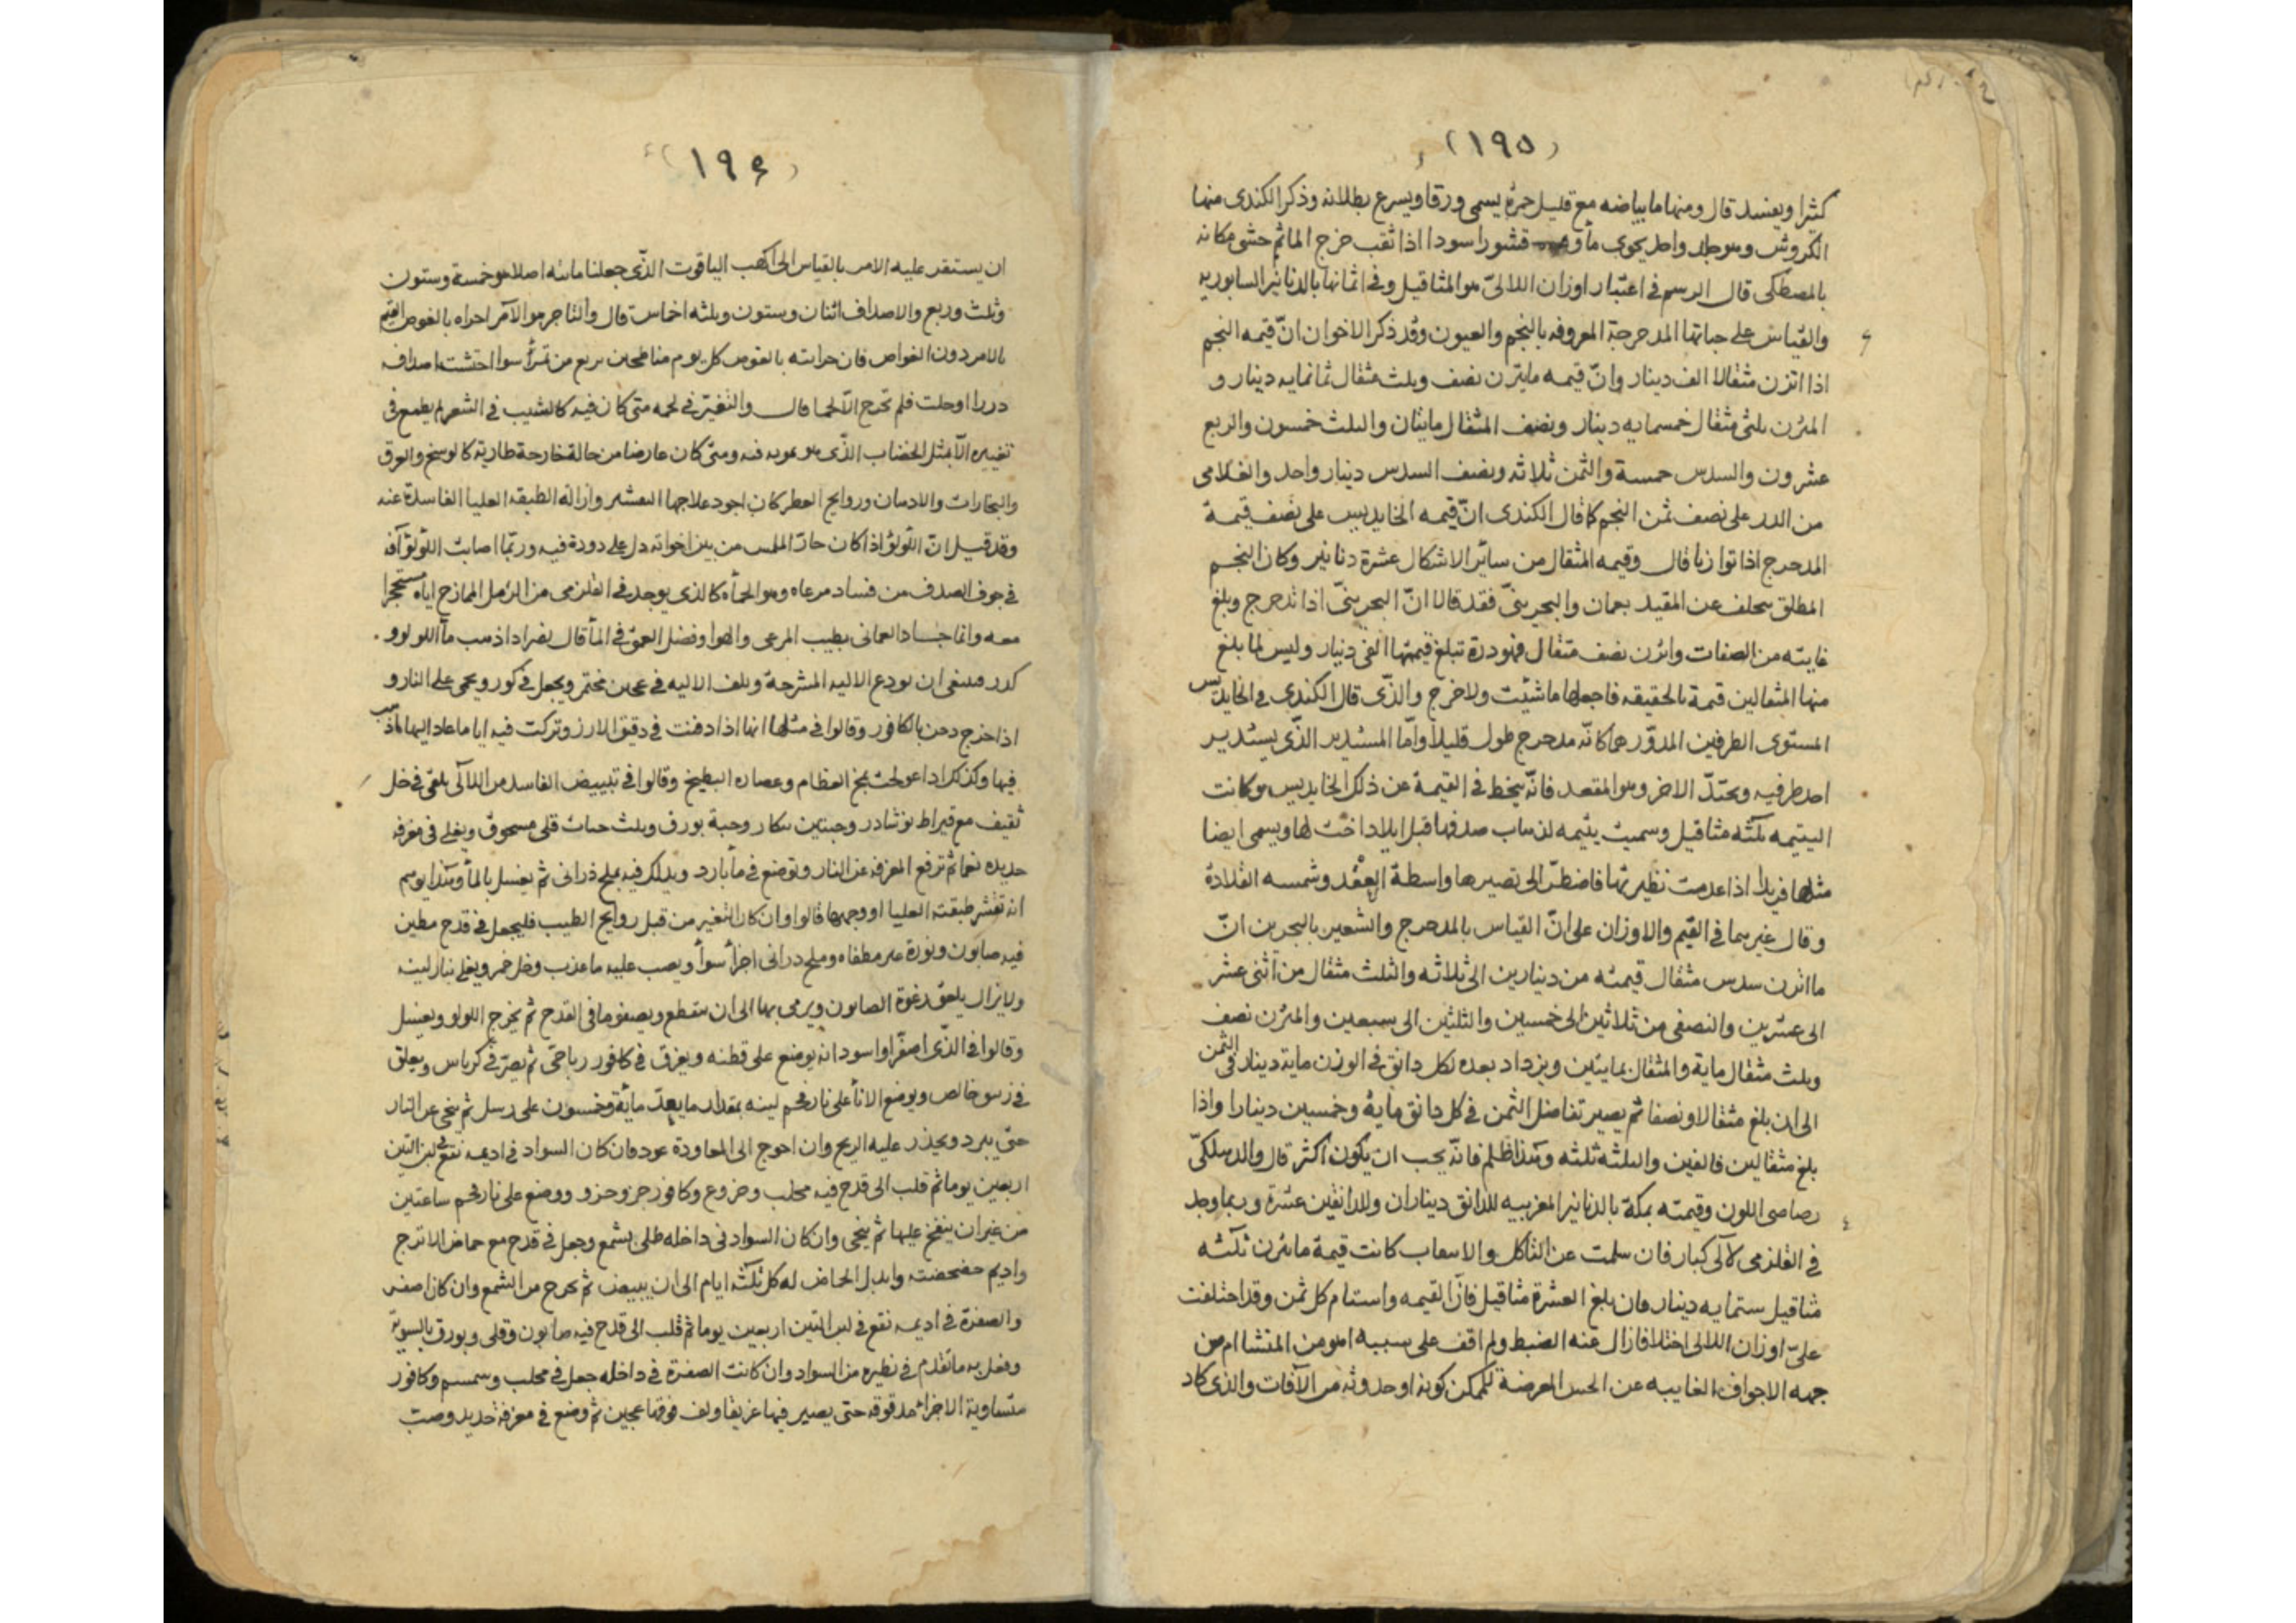 (١٩٥)
كثيرا ويفسد قال ومنها ما بياضه مع قليل حمرة يسمى ورقا ويسرع بطلانه وذكر الكندى منها
الكروش وهو جلد واحد يحوى مأ قشورا سودا اذا ثقب خرج الما ثم حشى مكانه
بالمصطكى قال الرسم فى اعتبار اوزان اللالئ هو المثاقيل وفى اثمانها بالدنانير السابوريه
والقياس على حباتها المدحرجة المعروفه بالنجم والعيون وقد ذكر الاخوان انّ قيمه النجم
اذا اتزن مثقالا الف دينار وانّ قيمه مايتزن نصف وثلث مثقال ثمانمايه دينار و
المتزن ثلثى مثقال خمسمايه دينار ونصف المثقال مايتان والثلث خمسون والربع
عشرون والسدس خمسة والثمن ثلاثه ونصف السدس دينار واحد والغلامى
من الدر على نصف ثمن النجم كما قال الكندى انّ قيمه الخايديس على نصف قيمة
المدحرج اذا توازنا قال وقيمه المثقال من ساير الاشكال عشرة دنانير وكان النجم
المطلق يتخلف عن المقيد بعمان والبحرينىّ فقد قالا انّ البحرينىّ اذا تدحرج وبلغ
غايته من الصفات واتزن نصف مثقال فهو درة تبلغ قيمتها الفى دينار وليس لما بلغ
منها المثقالين قيمة بالحقيقه فاجعلها ما شيت ولا خرج والذّى قال الكندى فى الخايديس
المستوى الطرفين المدوّرهما كانّه مدحرج طول قليلا وامّا المستدير الذّى يستدير
احد طرفيه ويحتدّ الاخر وهو المقعد فانّه يخط فى القيمة عن ذلك الخايديس وكانت
اليتيمه ثلثه مثاقيل وسميت يتيمه لذهاب صدفها قبل ايلاد اخت لها ويسمى ايضا
مثلها فريدا اذا عدمت نظيرتها فاضطرّ الى تصييرها واسطة العقد وشمسه القلادة
وقال غيرهما فى القيم والاوزان على انّ القياس بالمدحرج والشعين بالبحرين انّ
ما اتزن سدس مثقال قيمته من دينارين الى ثلاثه والثلث مثقال من اثنى عشر
الى عشرين والنصفى من ثلاثين الى خمسين والثلثين الى سبعين والمتزن نصف
وثلث مثقال ماية والمثقال بمايتين ويزداد بعده لكل دانق فى الوزن ماية دينار فى الثمن
الى ان بلغ مثقالا ونصفا ثم يصير تفاضل الثمن فى كل دانق ماية وخمسين دينارا واذا
بلغ مثقالين فالفين والثلثه ثلثه وهذا ظلم فانّه يجب ان يكون اكثر قال والدهلكىّ
رصاصى اللون وقيمته بمكة بالدنانير المغربيه للدانق ديناران وللدانقين عشرة وربما وجد
فى القلزمى لآلى كبار فان سلمت عن التاكل والاسعاب كانت قيمة مايتزن ثلثه
مثاقيل ستمايه دينار فان بلغ العشرة مثاقيل فاز القيمه واستام كل ثمن وقد اختلفت
علىّ اوزان اللالى اختلافا زال عنه الضبط ولم اقف على سببه اهو من المتشا ام من
جهه الاجواف الغايبه عن الحس المعرضة للممكن كونه او حدوثه من الآفات والذى كاد
(١٩٤)
ان يستقر عليه الامر بالقياس الى اكهب الياقوت الذّى جعلنا مائه اصلا هو خمسة وستون
وثلث وربع والاصداف اثنان وستون وثلثه اخماس قال والتاجر هو الآمر احراه بالغوص القيم
بالامر دون الغواص فان جرايته بالغوص كل يوم منا طحين بربع من تمرأ سوا احتشت اصداف
دررا او خلت فلم تخرج الّا لحما قال والتغيّر فى لحمه متى كان فيه كالشيب فى الشعر لم يطمع فى
تغييره الّا بمثل الخضاب الذّى هو تمويه فنه ومتى كان عارضا من حالة خارجة طارية كالوسخ والعرق
والبخارات والادهان وروايح العطر كان اجود علاجها التقشير وازالة الطبقه العليا الفاسدة عنه
وقد قيل انّ اللؤلؤ اذا كان حارّ الملمس من بين اخواته دل على دودة فيه وربّما اصابت اللؤلؤ آفه
فى جوف الصدف من فساد مرعاه وهو الحمأه كالذى يوجد فى القلزمى من الرمل الممازج اياه متحجرا
معه وانما جاد العمانى بطيب المرعى والهوا وفضل العمق فى المأ قال نصر اذا ذهب مآ اللولوو
كدر فينبغى ان يودع الاليه المشرحة ويلف الاليه فى عجين مختمر ويجعل فى كوز ويحمى على النار و
اذا خرج دهن بالكافور وقالوا فى مثلها انها اذا دفنت فى دقيق الارز وتركت فيه اياما عاد اليها ما ذهب
فيها وكذلك اذا عولجت بمخ العظام وعصارة البطيخ وقالوا فى تبييض الفاسد من اللآلى يلقى فى خل
ثقيف مع قيراط نوشادر وحبتين تنكار وحبة بورق وثلث حبات قلى مسحوق ويغلى فى مغرفه
حديده نعما ثم ترفع المغرفه عن النار وتوضع فى مأ بارد ويدلك فيه بملح ذرانى ثم يغسل بالمأ وهذا يوهم
انه تقشر طبقته العليا او وجهها قالوا وان كان التغير من قبل روايح الطيب فليجعل فى قدح مطين
فيه صابون ونورة غير مطفاه وملح درانى اجزأ سوأ ويصب عليه ما عذب وخل خمر ويغلى بنار لينه
ولا يزال يلحق رغوة الصابون ويرمى بها الى ان ينقطع ويصفو ما فى القدح ثم يخرج اللولو ويغسل
وقالوا فى الذّى اصفرّ او اسود انه يوضع على قطنه ويغرق فى كافور رباحى ثم يصرّ فى كرباس ويعلق
فى زيبو خالص ويوضع الانأ على نار فحم لينه بمقدار ما يعدّ ماية وخمسون على رسل ثم ينحى عن النار
حتى يبرد ويحذر عليه الريح وان احوج الى المعاودة عود فان كان السواد فى اديمه نقع فى لبن التين
اربعين يوما ثم قلب الى قدح فيه محلب وخروع وكافور جزو جزو ووضع على نار فحم ساعتين
من غير ان ينفخ عليها ثم ينحى وان كان السواد فى داخله طلى بشمع وجعل فى قدح مع حماض الاترج
واديم خضخضته وابدل الحماض له كل ثلثه ايام الى ان يبيض ثم يخرج من الشمع وان كان اصفر
والصفرة فى اديمه نقع فى لبن التين اربعين يوما ثم قلب الى قدح فيه صابون وقلى وبورق بالسوية
وفعل به ما تقدم فى نظيره من السواد وان كانت الصفرة فى داخله جعل فى محلب وسمسم وكافور
متساوية الاجزأ مدقوقه حتى يصير فيها غريقا ولف فوقها عجين ثم وضع فى مغرفة حديد وصب